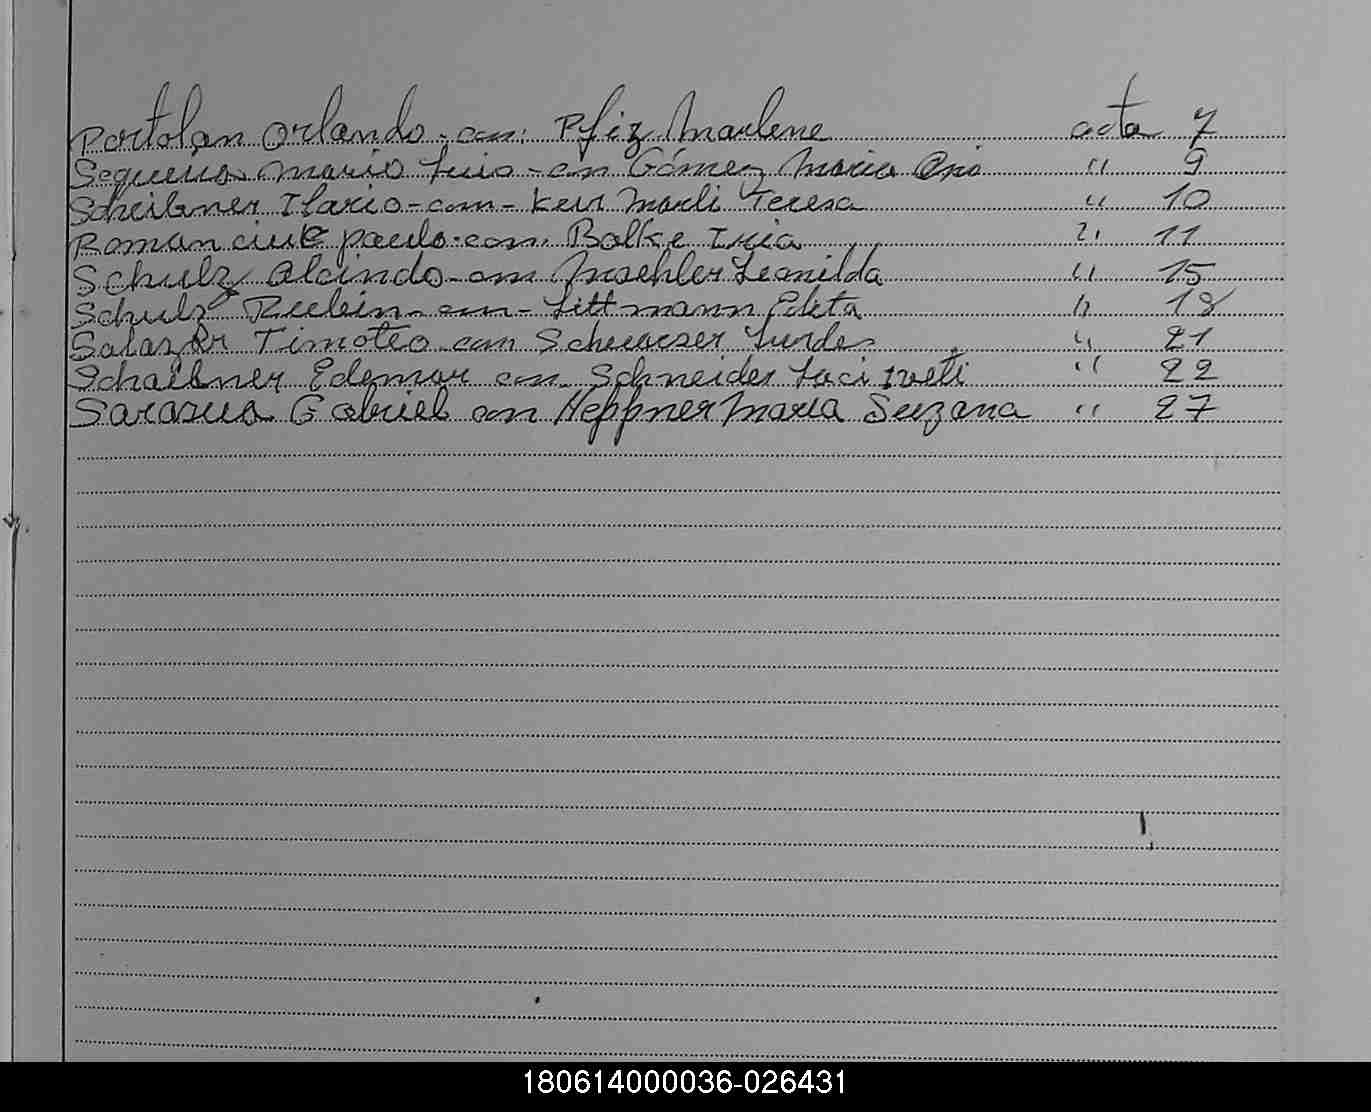 Portolan Orlando - con: Pfiz Marlene acta 7
Sequeira Mario Luis - con Gómez Maria " 9
Scheibner Ilario - com - Keir Marli Teresa " 10
Romanciuk paulo - con. Balke Iria " 11
Schulz Alcindo - con Moehler Leonilda " 15
Schulz Rubein - con - Littmann Edeta " 18
Salazar Timoteo con Lurdes " 21
Schaibner Edemar con Schneider Laci Iveti " 22
Sarasua Gabriel con Heppner Maria Suzana " 27
180614000036-026431